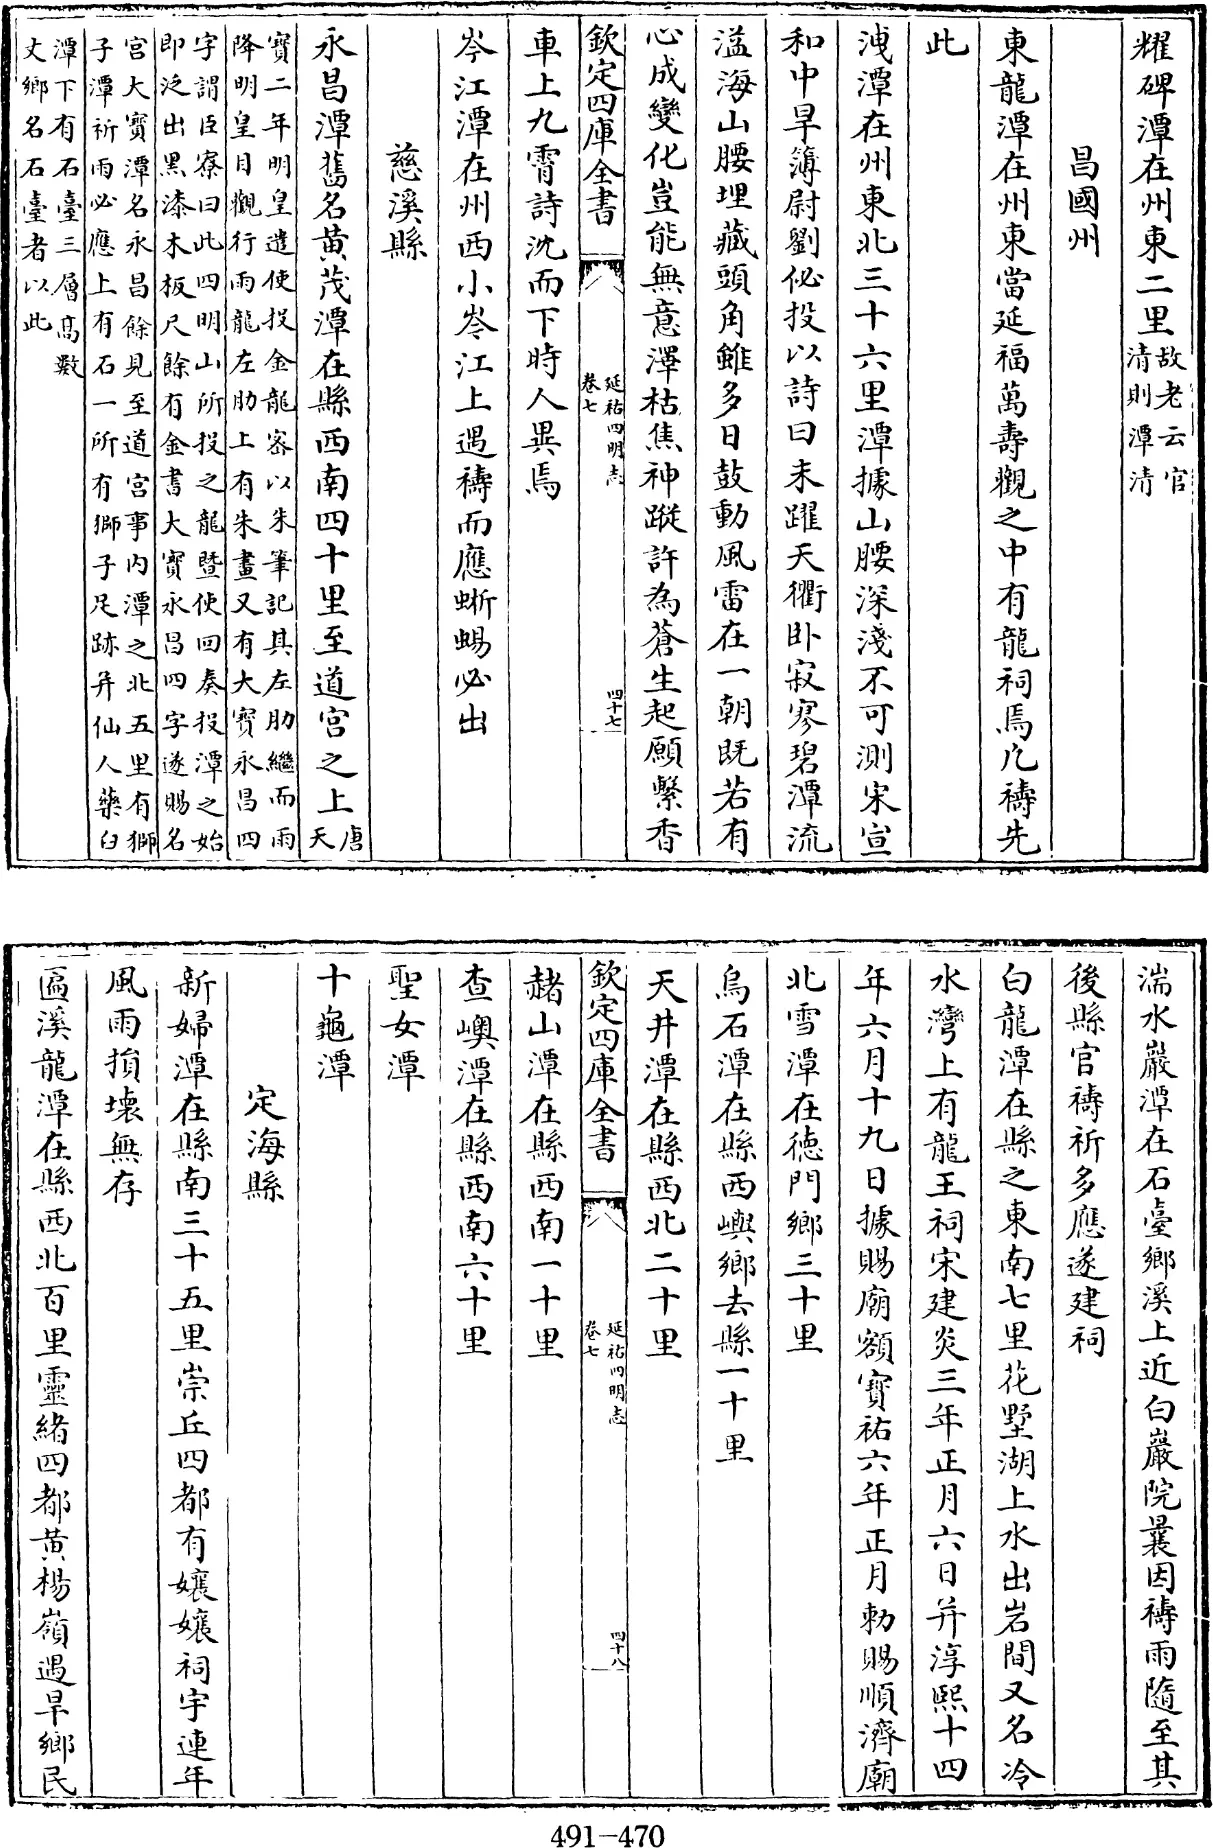 耀碑潭在州東二里故老云官清則潭清
昌國州
東龍潭在州東當延福萬壽觀之中有龍祠焉凡禱先
此
洩潭在州東北三十六里潭據山腰深淺不可測宋宣
和中旱簿尉劉佖投以詩曰未躍天衢卧寂寥碧潭流
溢海山腰埋藏頭角雖多日鼓動風雷在一朝既若有
心成變化豈能無意澤枯焦神蹤許為蒼生起願繫香
欽定四庫全書
延祐四明志
卷七
四十七
車上九霄詩沈而下時人異焉
岑江潭在州西小岑江上遇禱而應蜥蜴必出
慈溪縣
永昌潭舊名黃茂潭在縣西南四十里至道宮之上唐天
寶二年明皇遣使投金龍密以朱筆記其左肋繼而雨
降明皇目觀行雨龍左肋上有朱畫又有大寳永昌四
字謂臣寮曰此四明山所投之龍暨使回奏投潭之始
即泛出黑漆木板尺餘有金書大寳永昌四字遂賜名
宮大寳潭名永昌餘見至道宮事内潭之北五里有獅
子潭祈雨必應上有石一所有獅子足跡并仙人藥臼
潭下有石臺三層高數
丈鄉名石臺者以此
湍水巖潭在石臺鄉溪上近白巖院曩因禱雨隨至其
後縣官禱祈多應遂建祠
白龍潭在縣之東南七里花墅湖上水出岩間又名冷
水灣上有龍王祠宋建炎三年正月六日并淳熙十四
年六月十九日據賜廟額寳祐六年正月勅賜順濟廟
北雪潭在德門鄉三十里
烏石潭在縣西嶼鄉去縣一十里
天井潭在縣西北二十里
欽定四庫全書
延祐四明志
卷七
四十八
赭山潭在縣西南一十里
查嶴潭在縣西南六十里
聖女潭
十龜潭
定海縣
新婦潭在縣南三十五里崇丘四都有孃孃祠宇連年
風雨損壞無存
匾溪龍潭在縣西北百里靈緒四都黃楊嶺遇旱鄉民
491-470